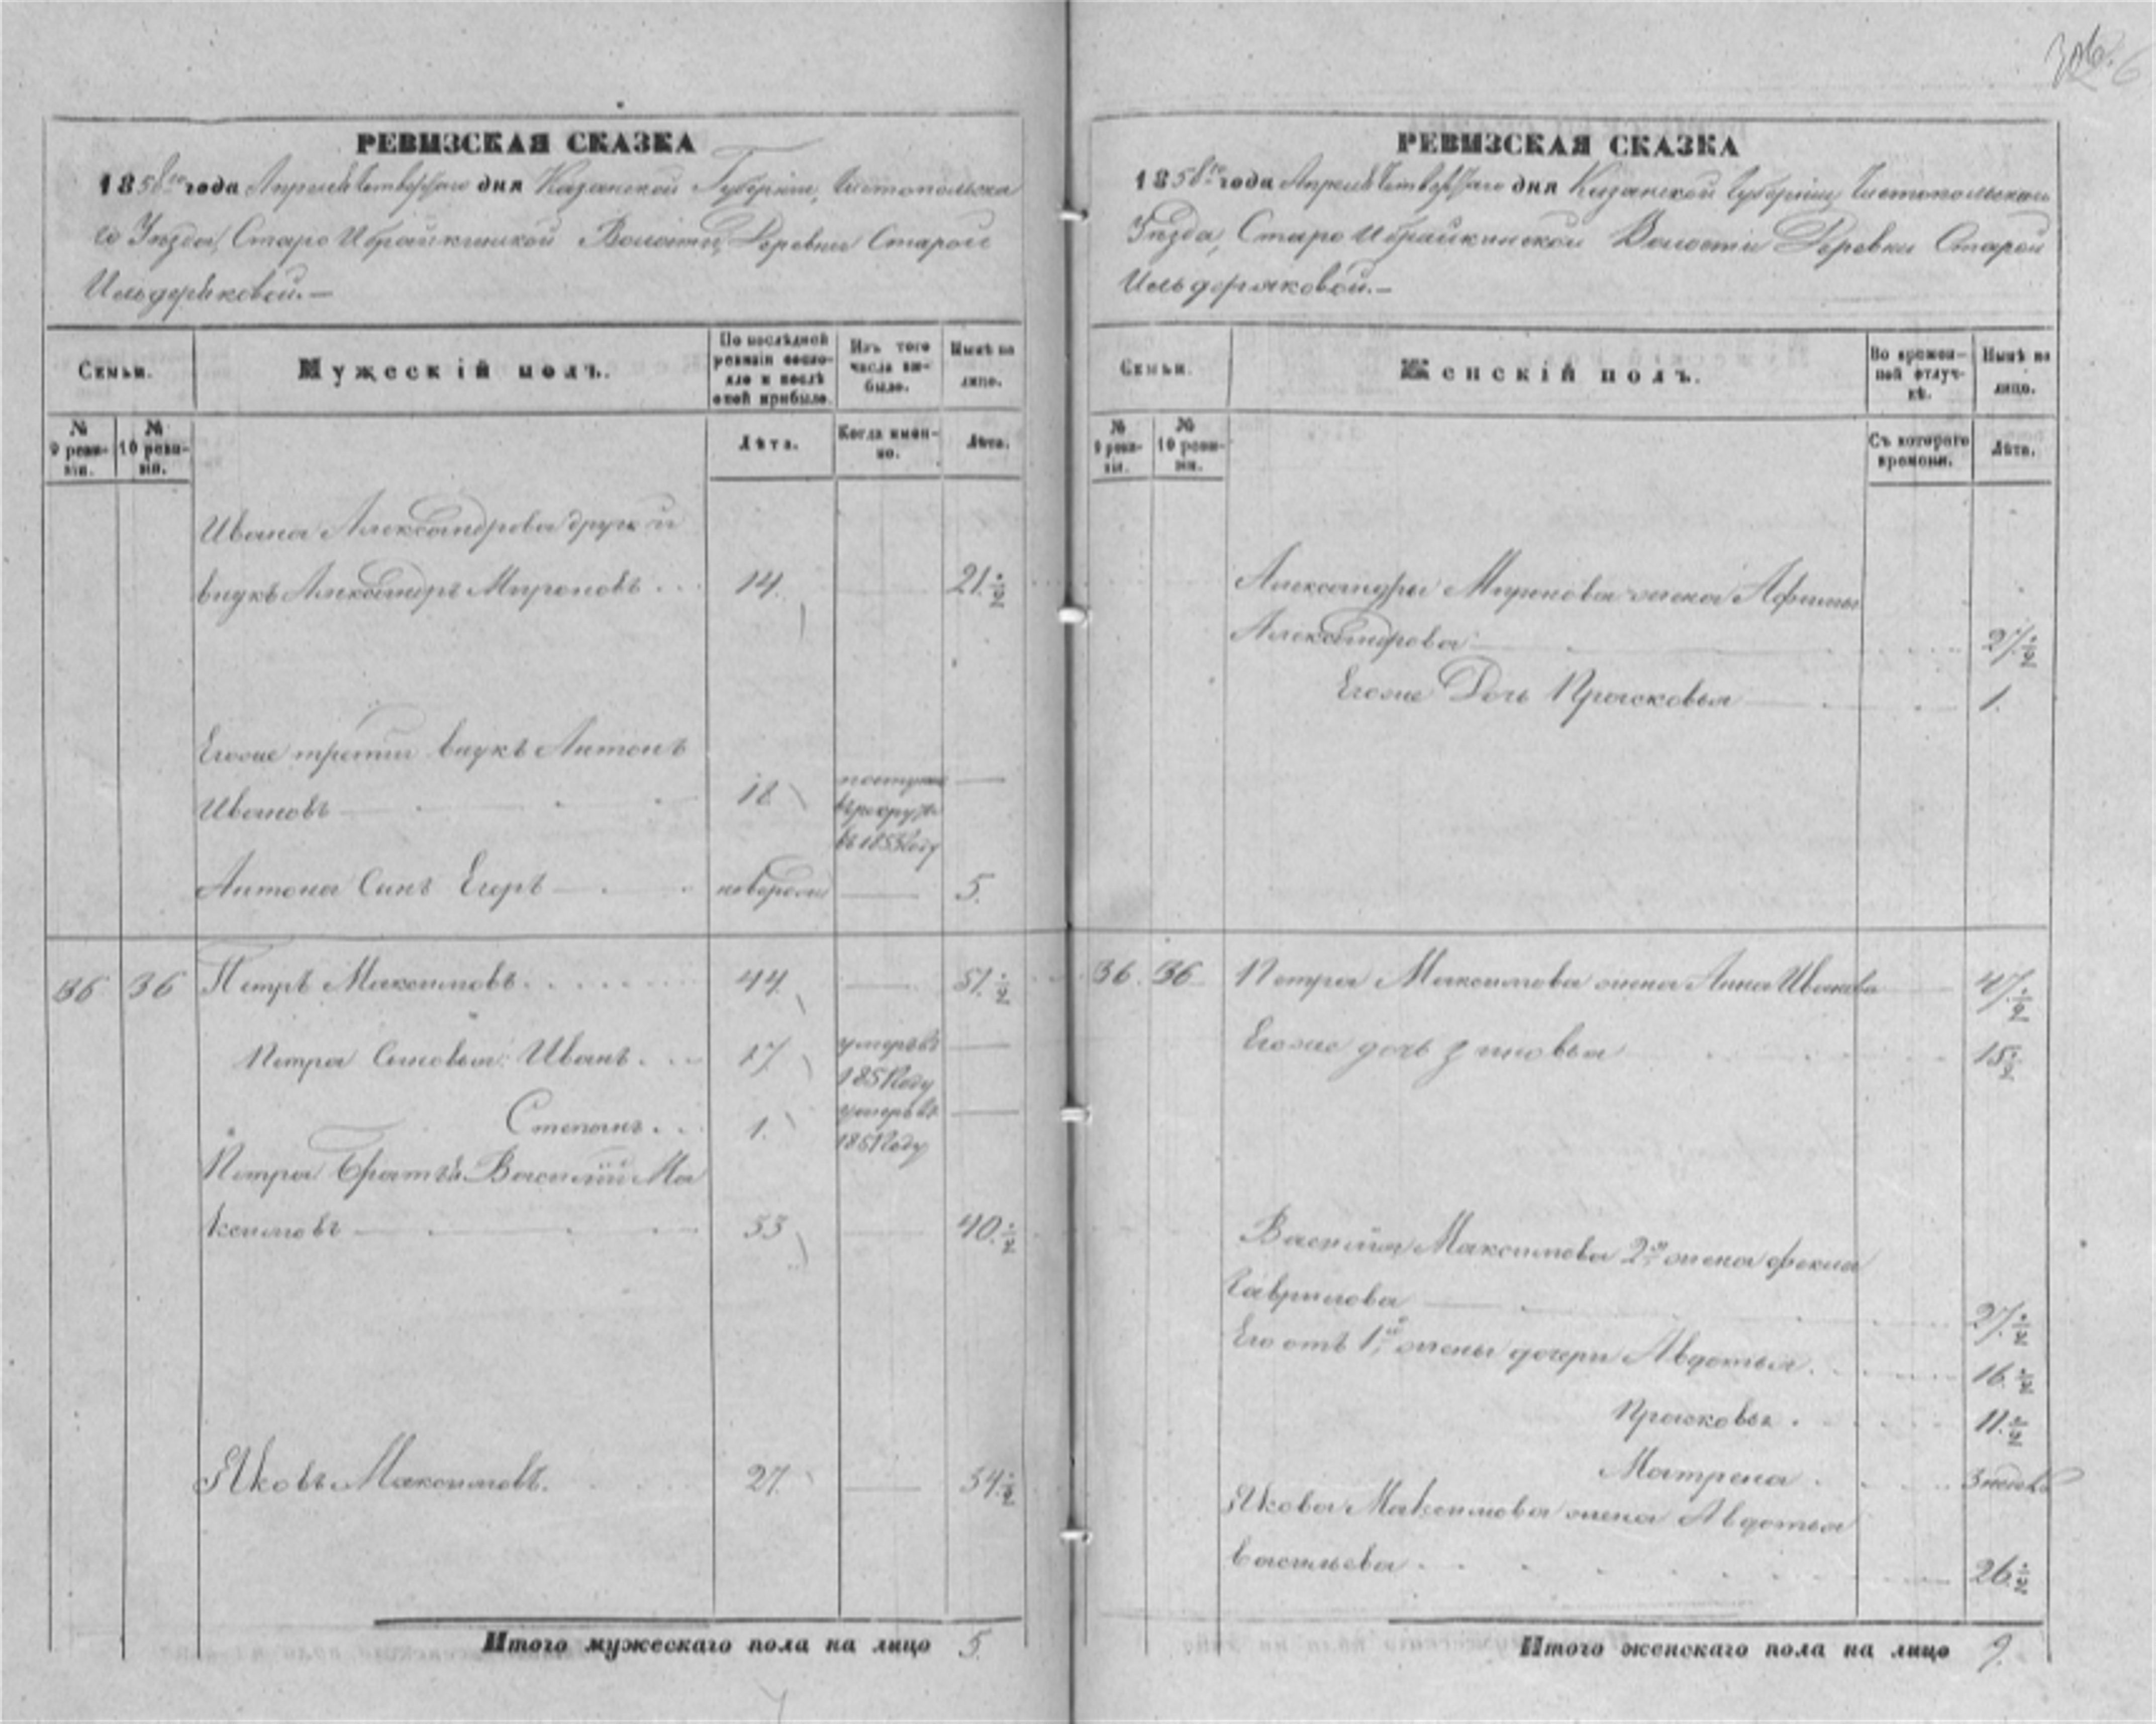 306. 6
РЕВИЗСКАЯ СКАЗКА
1858го года Апреля Четвертаго дня Казанской Губернiи, Чистопольска
го Уезда, Старо Ибрайкинской Волости, Деревни Старой
Ильдеряковой.—
Семьи.
Мужескiй полъ.
По послѣдней ревизiи состояло и послѣ оной прибыло.
Изъ того числа выбыло.
Нынѣ на лицо.
№ 9 ревизiи.
№ 10 ревизiи.
Лѣта.
Когда именно.
Лѣта.
Ивана Александрова другой
внукъ Александръ Мироновъ 14. — 21.½
Егоже третiй внукъ Антонъ
Ивановъ — 18 поступил в рекруты в 1855 году —
Антона Сынъ Егоръ — новорож — 5.
36 36 Петръ Максимовъ 44. — 51.½
Петра Сыновья: Иванъ 17. умеръ въ 1851 году —
Степанъ 1. умеръ въ 1851 году —
Петра Братья Василiй Ма
ксимовъ — 33 — 40.½
Яковъ Максимовъ. 27. — 34.½
Итого мужескаго пола на лицо 5.
РЕВИЗСКАЯ СКАЗКА
1858го года Апреля Четвертаго дня Казанской Губернiи, Чистопольскаго
Уѣзда, Старо Ибрайкинской Волости Деревни Старой
Ильдеряковой.—
Семьи.
Женскiй полъ.
Во временной отлучкѣ.
Нынѣ на лицо.
№ 9 ревизiи.
№ 10 ревизiи.
Съ котораго времени.
Лѣта.
Александры Миронова жена Афимья
Александрова — 27.½
Егоже Дочь Прасковья — 1.
36. 36 Петра Максимова жена Анна Иванова — 47.½
Егоже дочь Зиновья 15½
Василiя Максимова 2я жена Фекла
Гаврилова — 27.½
Его отъ 1й жены дочери Авдотья. 16.½
Прасковья. 11.½
Матрена. 3 недель
Якова Максимова жена Авдотья
Васильева. 26.½
Итого женскаго пола на лицо 9.